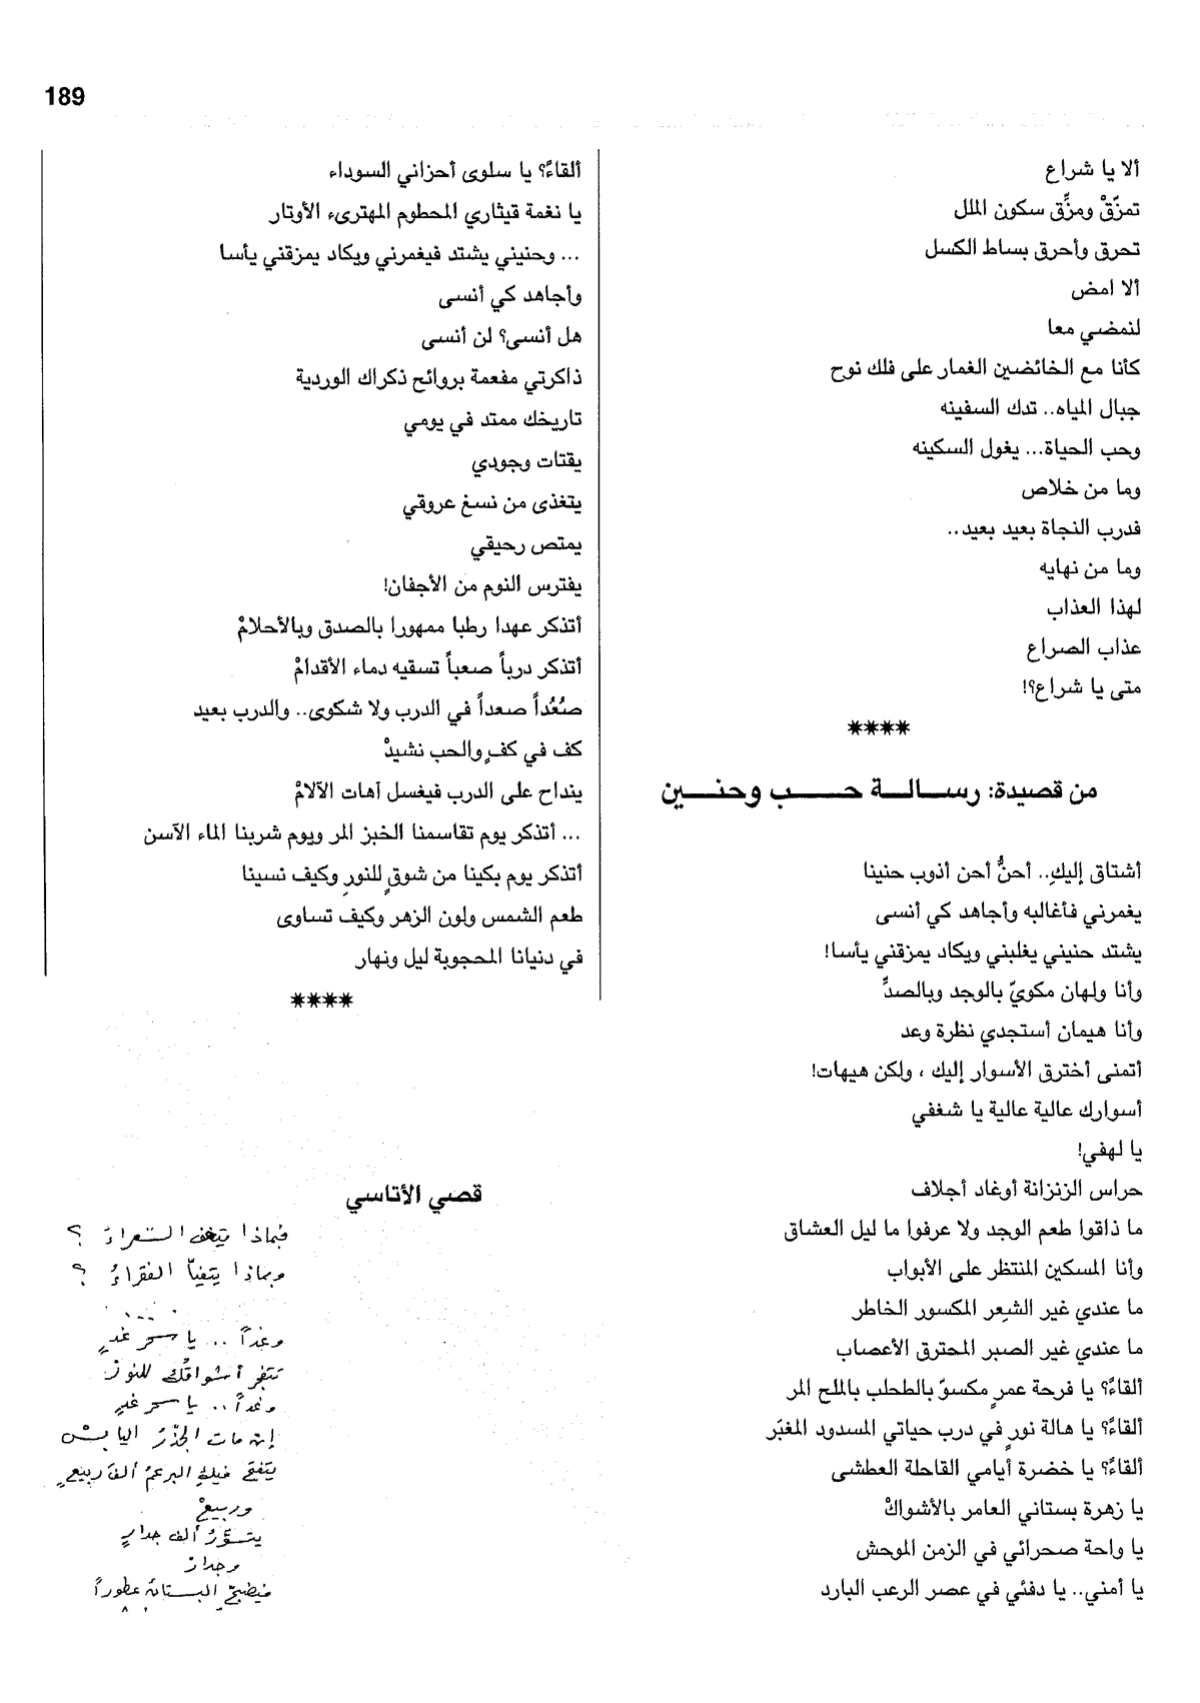 189
ألا يا شراع
تمزّقْ ومزِّق سكون الملل
تحرق وأحرق بساط الكسل
ألا امض
لنمضي معا
كأنا مع الخائضين الغمار على فلك نوح
جبال المياه.. تدك السفينه
وحب الحياة... يغول السكينه
وما من خلاص
فدرب النجاة بعيد بعيد..
وما من نهايه
لهذا العذاب
عذاب الصراع
متى يا شراع؟!
****
من قصيدة: رسالة حب وحنين
أشتاق إليكِ.. أحنُّ أحن أذوب حنينا
يغمرني فأغالبه وأجاهد كي أنسى
يشتد حنيني يغلبني ويكاد يمزقني يأسا!
وأنا ولهان مكويّ بالوجد وبالصدِّ
وأنا هيمان أستجدي نظرة وعد
أتمنى أخترق الأسوار إليك ، ولكن هيهات!
أسوارك عالية عالية يا شغفي
يا لهفي!
حراس الزنزانة أوغاد أجلاف
ما ذاقوا طعم الوجد ولا عرفوا ما ليل العشاق
وأنا المسكين المنتظر على الأبواب
ما عندي غير الشعِر المكسور الخاطر
ما عندي غير الصبر المحترق الأعصاب
ألقاءً؟ يا فرحة عمرٍ مكسوّ بالطحلب بالملح المر
ألقاءً؟ يا هالة نورٍ في درب حياتي المسدود المغبَر
ألقاءً؟ يا خضرة أيامي القاحلة العطشى
يا زهرة بستاني العامر بالأشواكْ
يا واحة صحرائي في الزمن الموحش
يا أمني.. يا دفئي في عصر الرعب البارد
ألقاءً؟ يا سلوى أحزاني السوداء
يا نغمة قيثاري المحطوم المهترىء الأوتار
... وحنيني يشتد فيغمرني ويكاد يمزقني يأسا
وأجاهد كي أنسى
هل أنسى؟ لن أنسى
ذاكرتي مفعمة بروائح ذكراك الوردية
تاريخك ممتد في يومي
يقتات وجودي
يتغذى من نسغ عروقي
يمتص رحيقي
يفترس النوم من الأجفان!
أتذكر عهدا رطبا ممهورا بالصدق وبالأحلامْ
أتذكر درباً صعباً تسقيه دماء الأقدامْ
صُعُداً صعداً في الدرب ولا شكوى.. والدرب بعيد
كف في كفٍ والحب نشيدْ
ينداح على الدرب فيغسل آهات الآلامْ
... أتذكر يوم تقاسمنا الخبز المر ويوم شربنا الماء الآسن
أتذكر يوم بكينا من شوقٍ للنورِ وكيف نسينا
طعم الشمس ولون الزهر وكيف تساوى
في دنيانا المحجوبة ليل ونهار
****
قصي الأتاسي
فبماذا يتغنى الشعراءُ ؟
وبماذا يتفيأ الفقراءُ ؟
......
وغداً .. يا سحر غدٍ
أشواقُكِ للنورْ
وغداً .. يا سحر غدٍ
إن مات الجذرُ اليابسْ
يتفتح فيكِ البرعمُ ألفَ ربيعٍ
وربيعْ
يتسوّرُ ألف جدارٍ
وجدارْ
فيضجّ البستانُ عطوراً